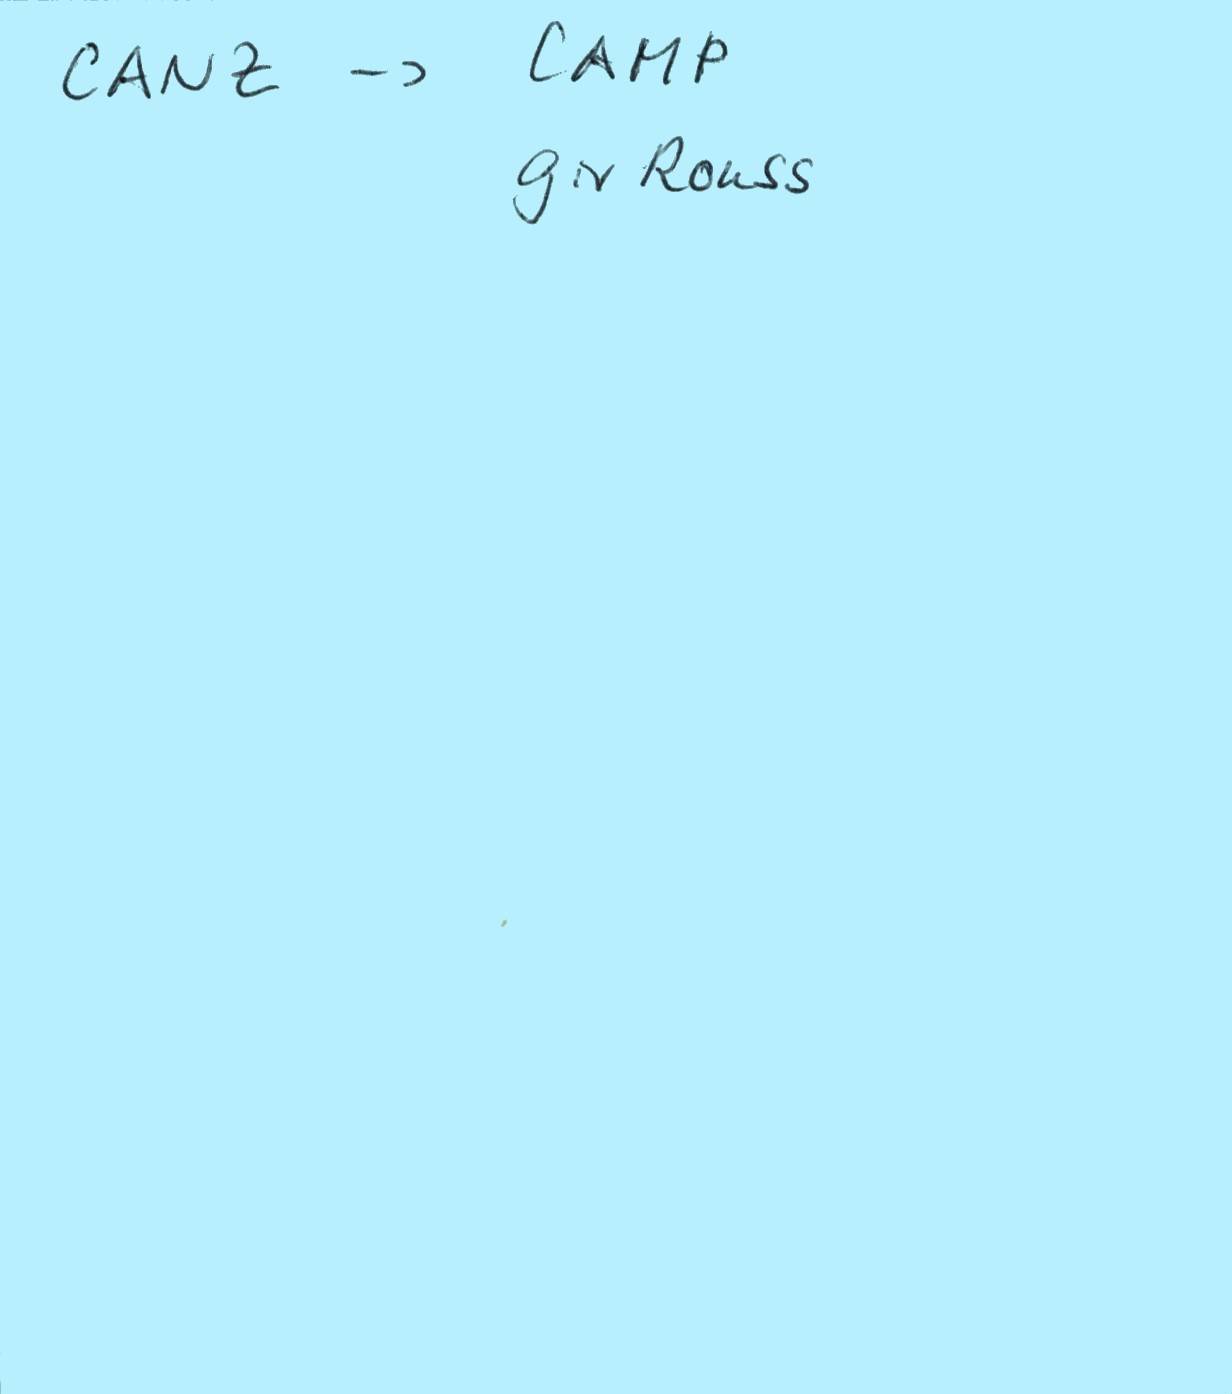 CANZ -> CAMP
gir Rouss